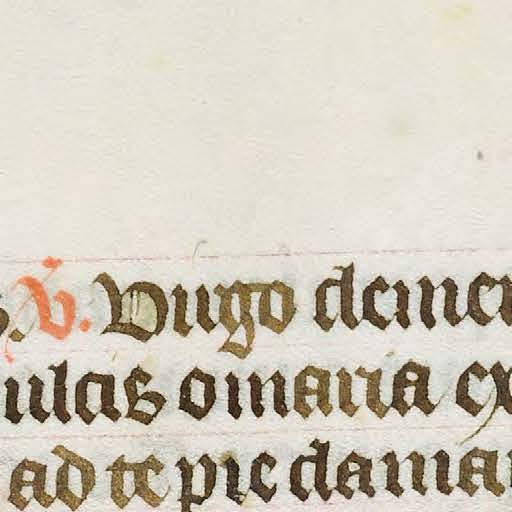 V. Virgo clemen
ulcis o maria ex
ad te pie claman